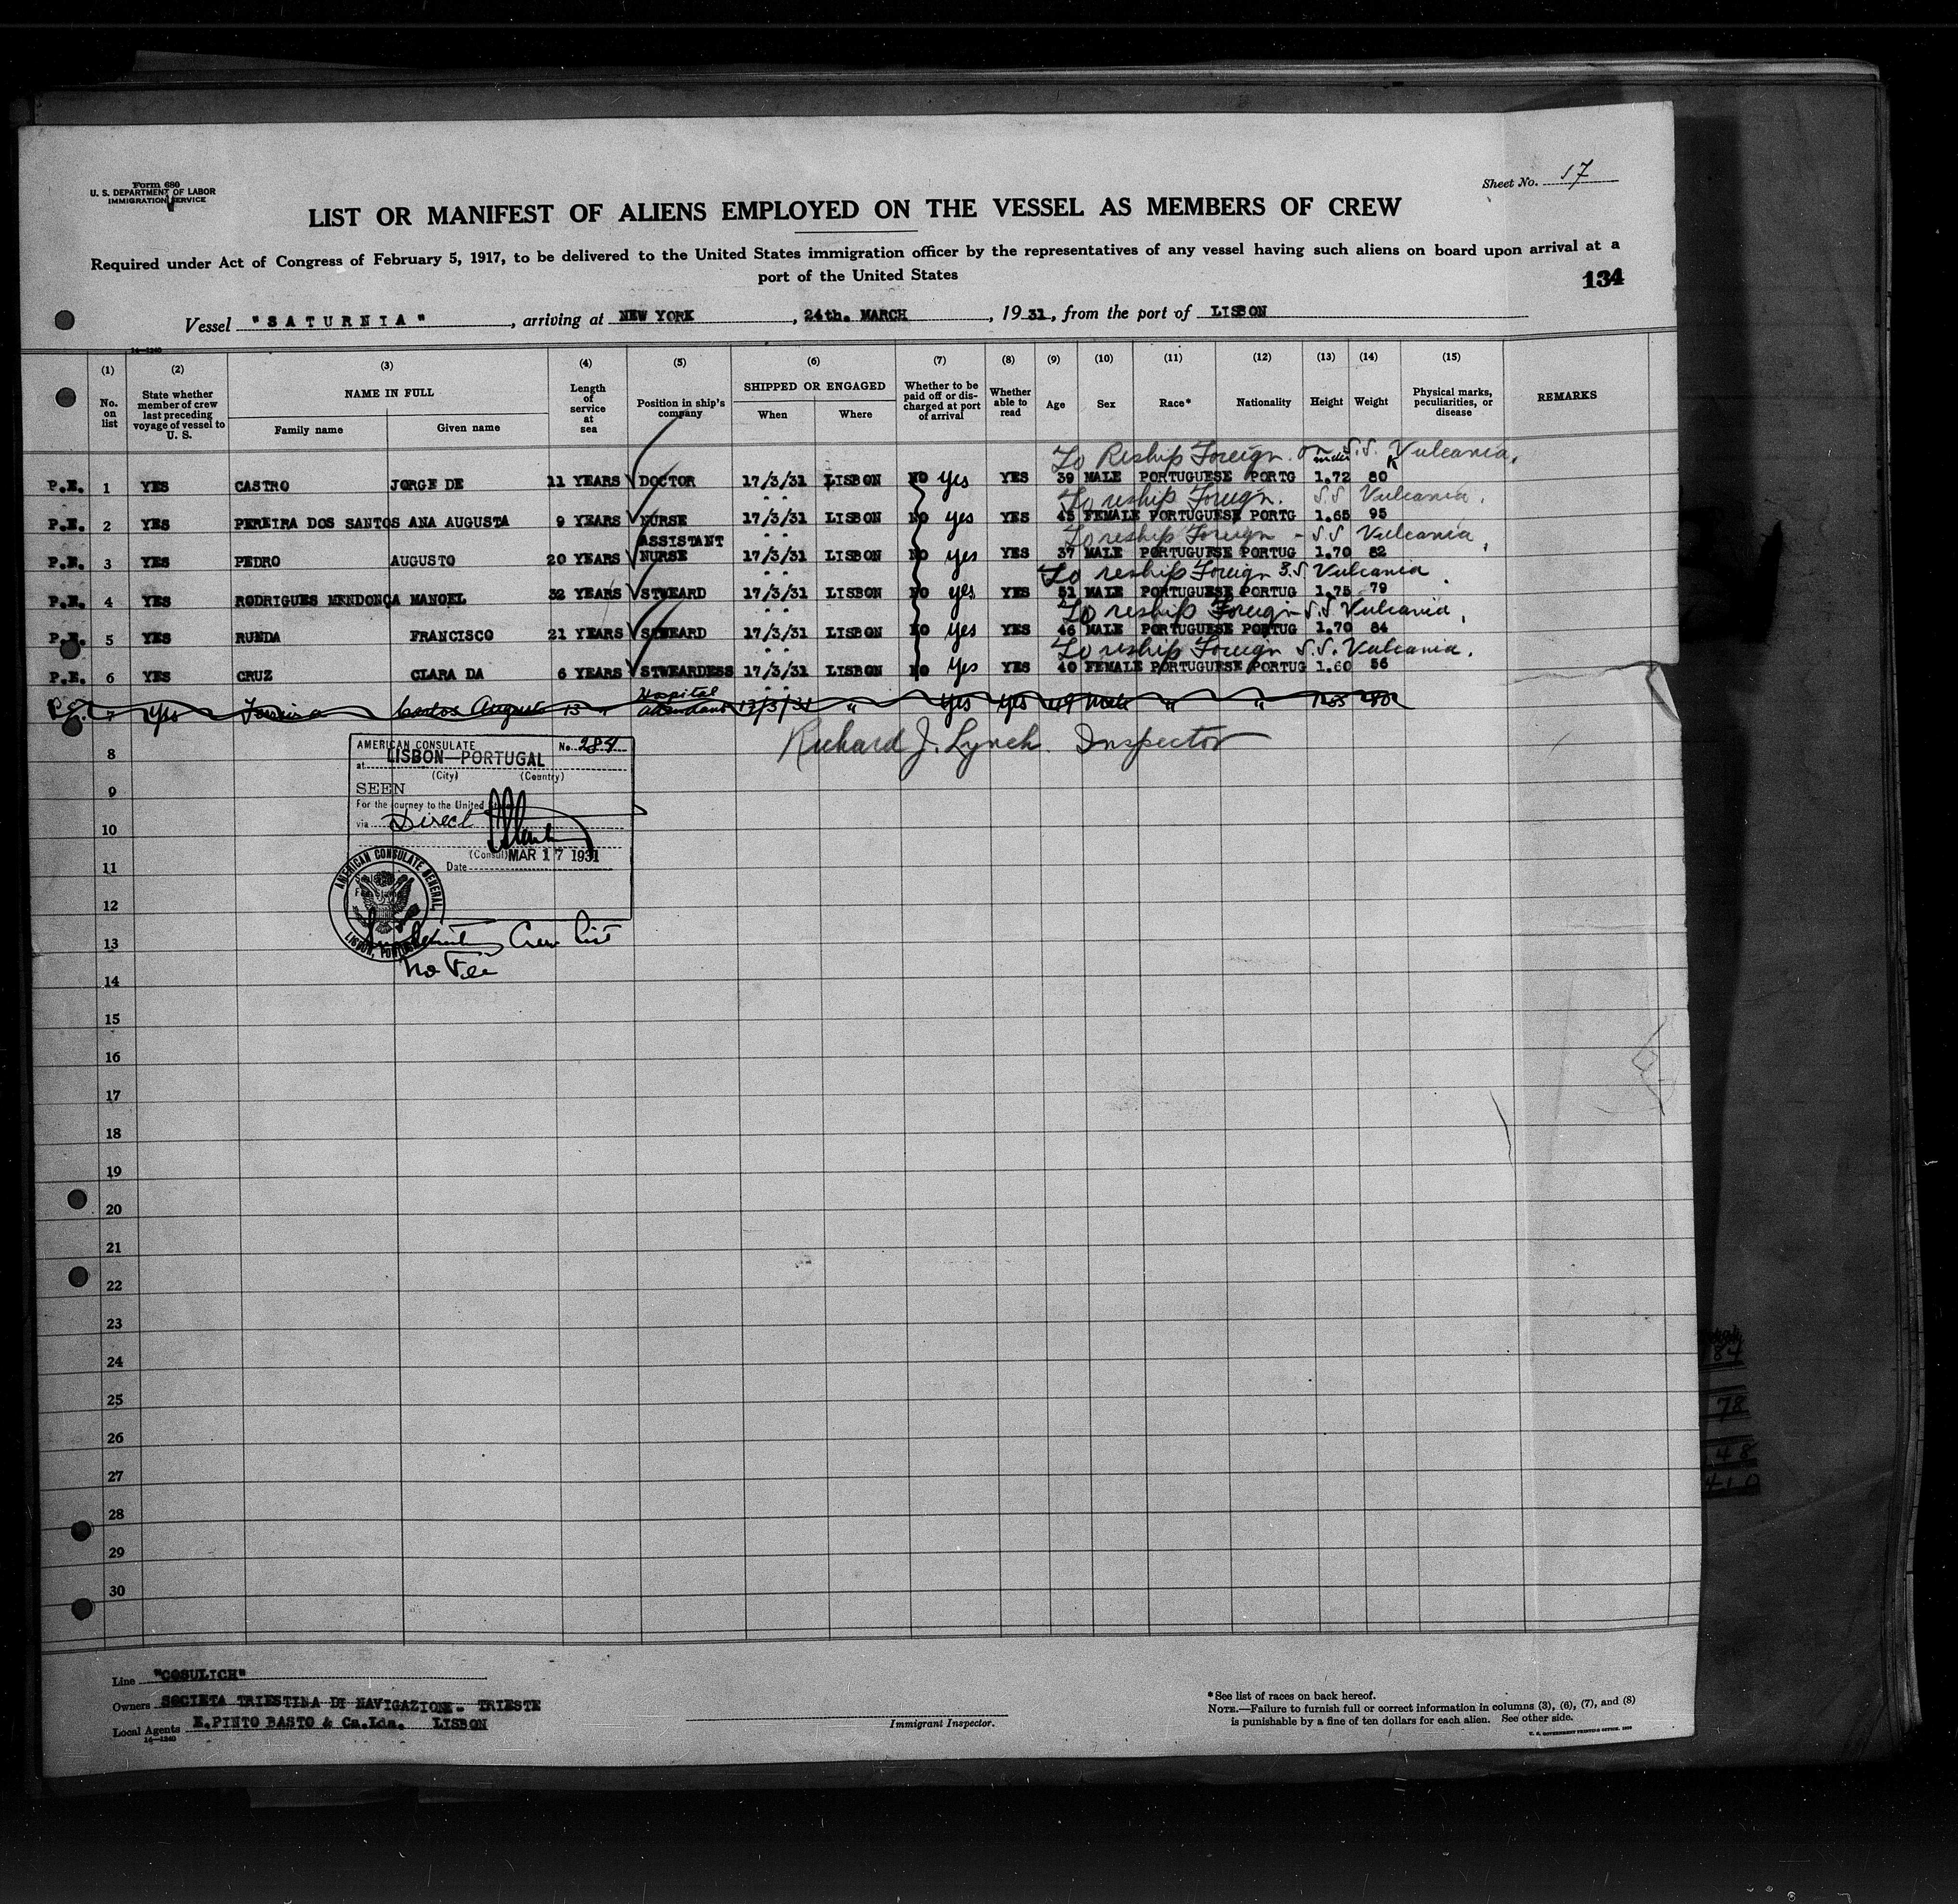 Form 680
U. S. DEPARTMENT OF LABOR
IMMIGRATION SERVICE
Sheet No. 17
LIST OR MANIFEST OF ALIENS EMPLOYED ON THE VESSEL AS MEMBERS OF CREW
Required under Act of Congress of February 5, 1917, to be delivered to the United States immigration officer by the representatives of any vessel having such aliens on board upon arrival at a
port of the United States
134
Vessel "SATURNIA", arriving at NEW YORK, 24th. MARCH, 1931, from the port of LISBON
14—1240
(1) (2) (3) (4) (5) (6) (7) (8) (9) (10) (11) (12) (13) (14) (15)
No. on list State whether member of crew last preceding voyage of vessel to U. S. NAME IN FULL Family name Given name Length of service at sea Position in ship's company SHIPPED OR ENGAGED When Where Whether to be paid off or discharged at port of arrival Whether able to read Age Sex Race* Nationality Height Weight Physical marks, peculiarities, or disease REMARKS
To Reship Foreign. on S.S. Vulcania.
P.E. 1 YES CASTRO JORGE DE 11 YEARS DOCTOR 17/3/31 LISBON NO yes YES 39 MALE PORTUGUESE PORTG 1.72 80 K
To reship Foreign. S.S Vulcania.
P.E. 2 YES PEREIRA DOS SANTOS ANA AUGUSTA 9 YEARS NURSE 17/3/31 LISBON NO yes YES 45 FEMALE PORTUGUESE PORTG 1.65 95
To reship Foreign - S.S Vulcania.
P.E. 3 YES PEDRO AUGUSTO 20 YEARS ASSISTANT NURSE 17/3/31 LISBON NO yes YES 37 MALE PORTUGUESE PORTUG 1.70 82
To reship Foreign S.S. Vulcania.
P.E. 4 YES RODRIGUES MENDONÇA MANOEL 32 YEARS STWEARD 17/3/31 LISBON NO yes YES 51 MALE PORTUGUESE PORTUG 1.75 79
To reship Foreign - S.S Vulcania.
P.E. 5 YES RUNDA FRANCISCO 21 YEARS STWEARD 17/3/31 LISBON NO yes YES 46 MALE PORTUGUESE PORTUG 1.70 84
To reship Foreign S.S. Vulcania.
P.E. 6 YES CRUZ CLARA DA 6 YEARS STWEARDESS 17/3/31 LISBON NO yes YES 40 FEMALE PORTUGUESE PORTUG 1.60 56
P.E. 7 Yes Carlos Augusto 13 " Hospital Attendant 17/3/31 " Yes Yes 49 Male " "
Richard J. Lynch. Inspector
8
9
10
11
12
13
14
15
16
17
18
19
20
21
22
23
24
25
26
27
28
29
30
AMERICAN CONSULATE No. 284
at LISBON—PORTUGAL
(City) (Country)
SEEN
For the journey to the United States
via Direct
(Consul)
Date MAR 17 1931
AMERICAN CONSULATE GENERAL, LISBON, PORTUGAL
Crew List
No Fee
Line "COSULICH"
Owners SOCIETA TRIESTINA DI NAVIGAZIONE- TRIESTE
Local Agents E.PINTO BASTO & Ca.Lda. LISBON
14—1240
Immigrant Inspector.
*See list of races on back hereof.
NOTE.—Failure to furnish full or correct information in columns (3), (6), (7), and (8)
is punishable by a fine of ten dollars for each alien. See other side.
84
78
48
410